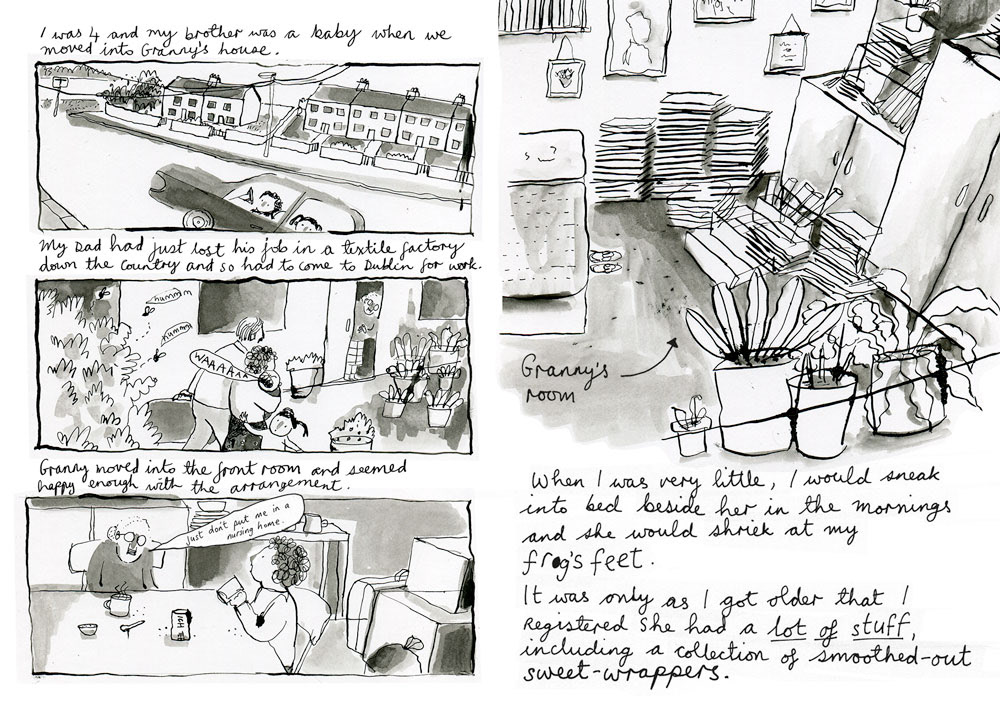 I was 4 and my brother was a baby when we
moved into Granny's house.
My Dad had just lost his job in a textile factory
down the country and so had to come to Dublin for work.
hummm
hummm
WAAAAAA
Granny moved into the front room and seemed
happy enough with the arrangement.
Just don't put me in a
nursing home.
Granny's
room
When I was very little, I would sneak
into bed beside her in the mornings
and she would shriek at my
frog's feet.
It was only as I got older that I
registered she had a lot of stuff,
including a collection of smoothed-out
sweet-wrappers.